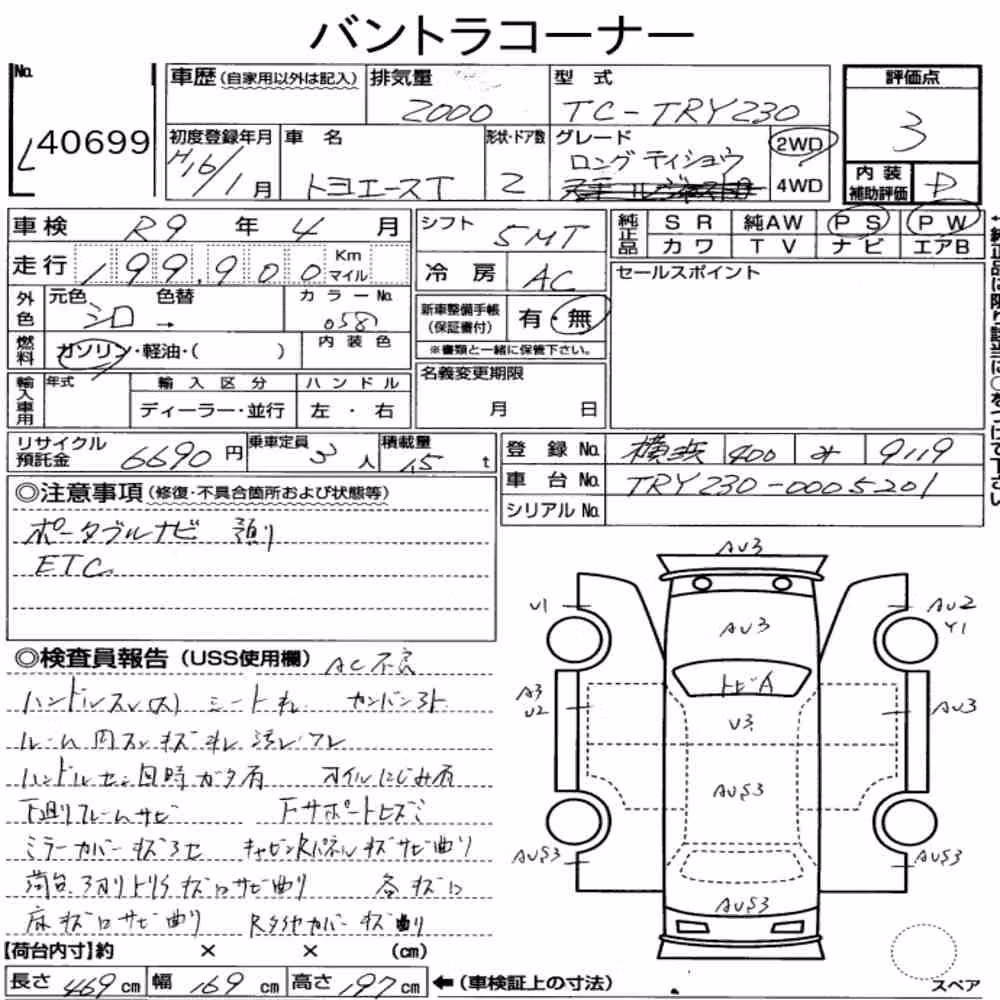 バントラコーナー
No. 40699
車歴(自家用以外は記入) 排気量 2000 型式 TC-TRY230
評価点 3
初度登録年月 H16/1月 車名 トヨエースT 形状・ドア数 2 グレード ロング 2WD 4WD
内装補助評価 D
車検 R9年 4月
走行 199,900 Km マイル
外色 元色 シロ 色替 → カラーNo. 058
燃料 ガソリン・軽油・( ) 内装色
輸入車用 年式 輸入区分 ディーラー・並行 ハンドル 左・右
シフト 5MT
冷房 AC
新車整備手帳(保証書付) 有・無
※書類と一緒に保管下さい。
名義変更期限 月 日
純正品 SR 純AW PS PW
カワ TV ナビ エアB
セールスポイント
リサイクル預託金 6690円 乗車定員 3人 積載量 1.5t
登録No. 横浜 400 9119
車台No. TRY230-0005201
シリアルNo.
◎注意事項(修復・不具合箇所および状態等)
ポータブルナビ
ETC
◎検査員報告(USS使用欄) AC不良
ハンドルスレ(大) シート
ルーム内 キズ 汚レ
ハンドル 時ガタ有 オイルにじみ有
下廻りフレームサビ 下サポート
ミラーカバーキズ キャビンRパネルキズサビ曲り
荷台 サビ曲り 各キズ
床キズ サビ曲り Rタイヤカバーキズ曲り
【荷台内寸】約 × × (cm)
長さ 469cm 幅 169cm 高さ 197cm ←(車検証上の寸法)
AU3
U1
AU2
Y1
AU3
トビA
A3
U2
AU3
U3
AUS3
AUS3
AUS3
AUS3
スペア